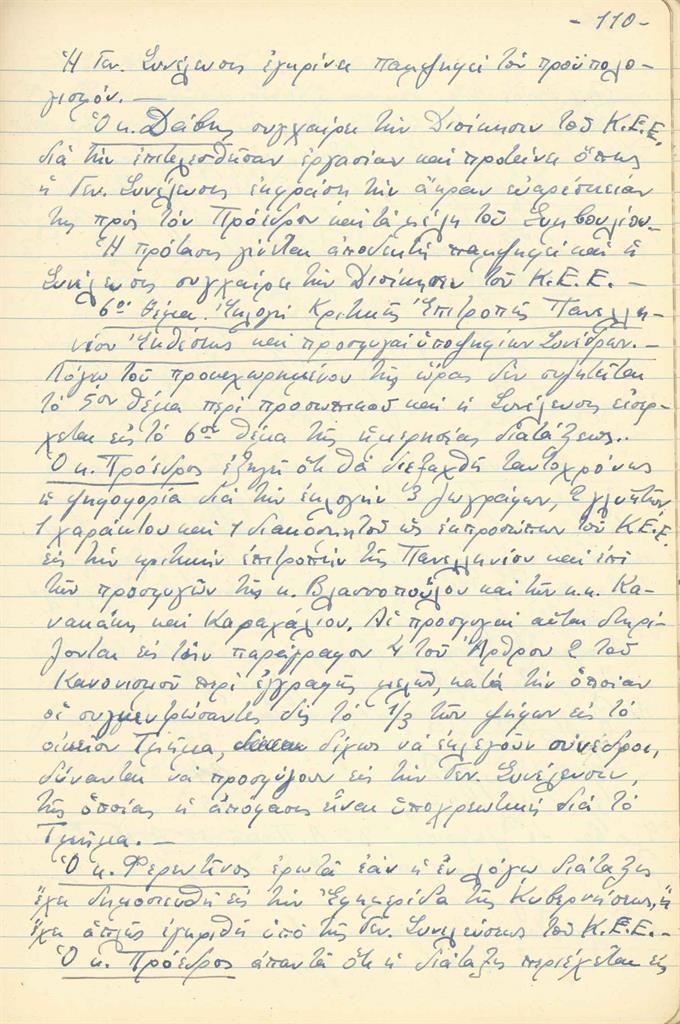 - 110 -
Ἡ Γεν. Συνέλευσις ἐγκρίνει παμψηφεί τόν προϋπολο-
γισμόν. —
Ὁ κ. Δάβης συγχαίρει τήν Διοίκησιν τοῦ Κ.Ε.Ε.
διά τήν ἐπιτελεσθεῖσαν ἐργασίαν καί προτείνει ὅπως
ἡ Γεν. Συνέλευσις ἐκφράση τήν ἄκραν εὐαρέσκειάν
της πρός τόν Πρόεδρον καί τά μέλη τοῦ Συμβουλίου.-
Ἡ πρότασις γίνεται ἀποδεκτή παμψηφεί καί ἡ
Συνέλευσις συγχαίρει τήν Διοίκησιν τοῦ Κ.Ε.Ε. —
6ον θέμα. Ἐκλογή Κριτικῆς Ἐπιτροπῆς Πανελλη-
νίου Ἐκθέσεως καί προσφυγαί ὑποψηφίων Συνέδρων. —
Λόγω τοῦ προκεχωρημένου τῆς ὥρας δέν συζητεῖται
τό 5ον θέμα περί προσωπικοῦ καί ἡ Συνέλευσις εἰσέρ-
χεται εἰς τό 6ον θέμα τῆς ἡμερησίας διατάξεως..
Ὁ κ. Πρόεδρος ἐξηγεῖ ὅτι θά διεξαχθῆ ταυτοχρόνως
ἡ ψηφοφορία διά τήν ἐκλογήν 3 ζωγράφων, 2 γλυπτῶν,
1 χαράκτου καί 1 διακοσμητοῦ ὡς ἐκπροσώπων τοῦ Κ.Ε.Ε.
εἰς τήν κριτικήν ἐπιτροπήν τῆς Πανελληνίου καί ἐπί
τῶν προσφυγῶν τῆς κ. Βλασσοπούλου καί τῶν κ.κ. Κα-
νακάκη καί Καραχάλιου. Αἱ προσφυγαί αὗται στηρί-
ζονται εἰς τήν παράγραφον 4 τοῦ Ἄρθρου 2 τοῦ
Κανονισμοῦ περί ἐγγραφῆς μελῶν, κατά τήν ὁποίαν
οἱ συγκεντρώσαντες δίς τό 1/3 τῶν ψήφων εἰς τό
οἰκεῖον Τμῆμα, δίχως νά ἐκλεγοῦν σύνεδροι,
δύνανται νά προσφύγουν εἰς τήν Γεν. Συνέλευσιν,
τῆς ὁποίας ἡ ἀπόφασις εἶναι ὑποχρεωτική διά τό
Τμῆμα. —
Ὁ κ. Φερεντῖνος ἐρωτᾶ ἐάν ἡ ἐν λόγω διάταξις
ἔχει δημοσιευθῆ εἰς τήν Ἐφημερίδα τῆς Κυβερνήσεως, ἤ
ἔχει ἁπλῶς ἐγκριθῆ ὑπό τῆς Γεν. Συνελεύσεως τοῦ Κ.Ε.Ε. -
Ὁ κ. Πρόεδρος ἀπαντᾶ ὅτι ἡ διάταξις περιέχεται εἰς